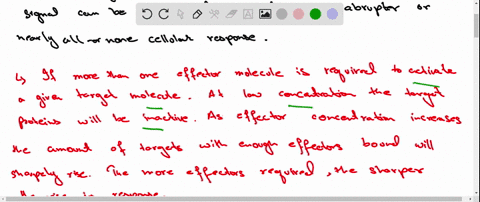 signal can be abruptor or
nearly all-or none cellular response.
↳ If more than one effector molecule is required to activate
a given target molecule. At low concentration the target
proteins will be inactive. As effector concentration increases
the amount of targets with enough effectors bound will
sharpely rise. The more effectors required, the sharper
the rise in response.